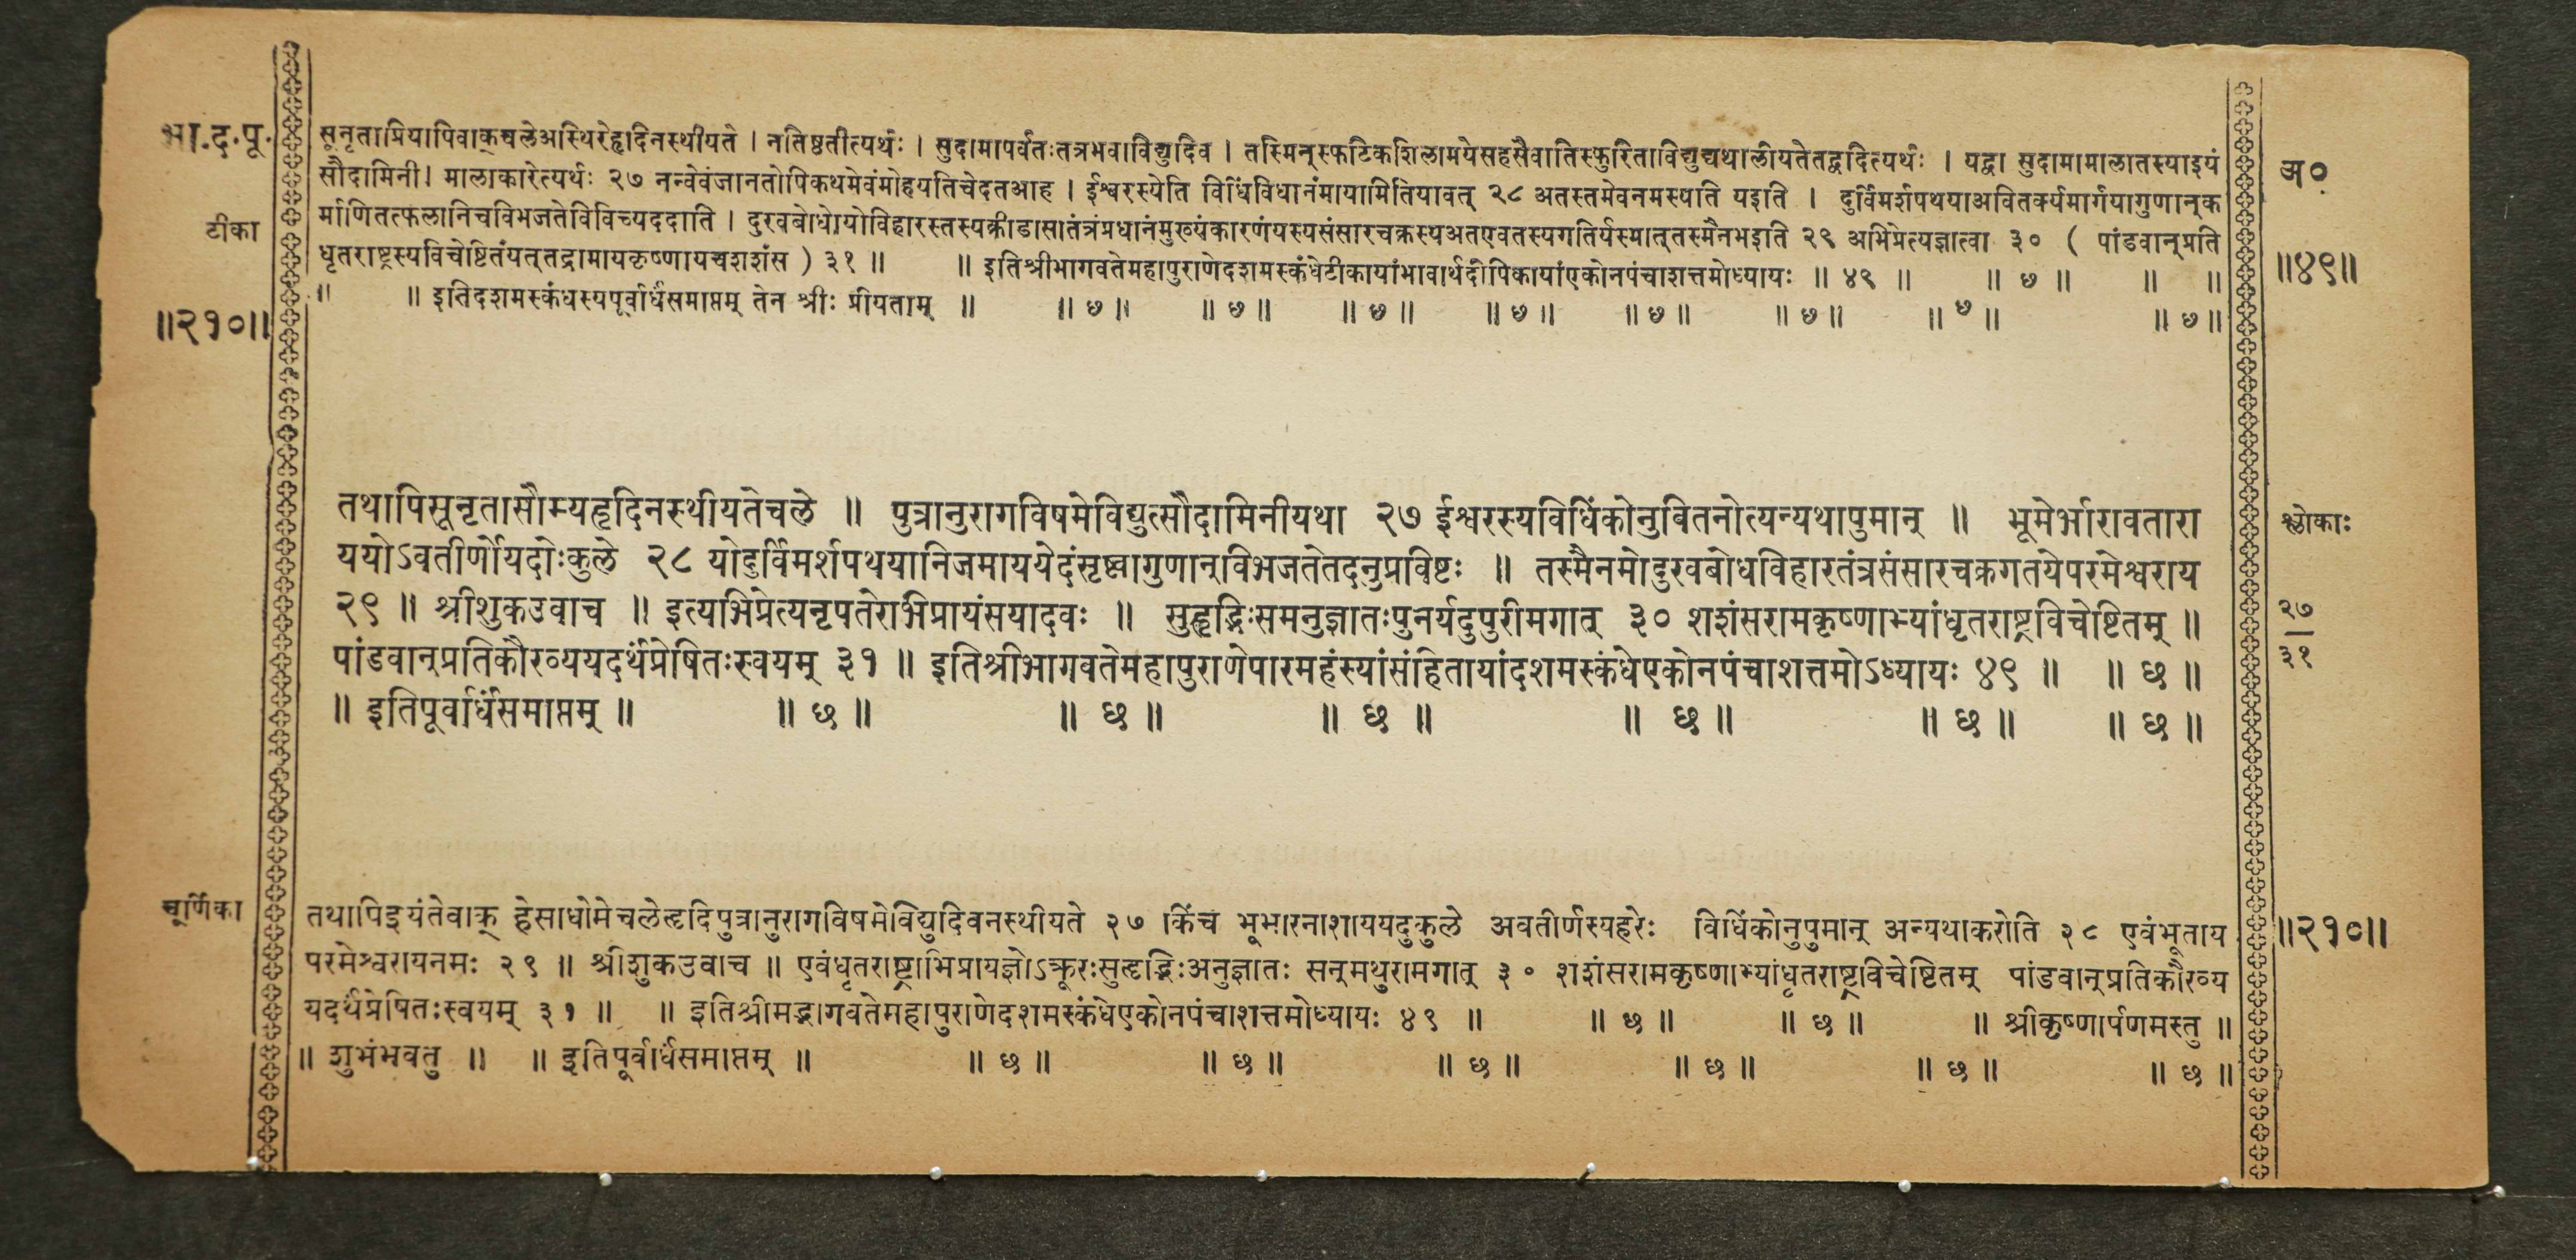 भा.द.पू.
सूनृताप्रियापिवाक्चलेअस्थिरेहृदिनस्थीयते । नतिष्ठतीत्यर्थः । सुदामापर्वतःतत्रभवाविद्युदिव । तस्मिन्स्फटिकशिलामयेसहसैवातिस्फुरिताविद्युद्यथालीयतेतद्वदित्यर्थः । यद्वा सुदामामालातस्याइयं
सौदामिनी। मालाकारेत्यर्थः २७ नन्वेवंजानतोपिकथमेवंमोहयतिचेदतआह । ईश्वरस्येति विधिंविधानंमायामितियावत् २८ अतस्तमेवनमस्यति यइति । दुर्विमर्शपथयाअवितर्क्यमार्गयागुणान्क
अ०
टीका
र्माणितत्फलानिचविभजतेविविच्यददाति । दुरवबोधोयोविहारस्तस्यक्रीडासातंत्रंप्रधानंमुख्यंकारणंयस्यसंसारचक्रस्यअतएवतस्यगतिर्यस्मात्तस्मैनमइति २९ अभिप्रेत्यज्ञात्वा ३० ( पांडवान्प्रति
धृतराष्ट्रस्यविचेष्टितंयत्तद्रामायकृष्णायचशशंस ) ३१ ॥ ॥ इतिश्रीभागवतेमहापुराणेदशमस्कंधेटीकायांभावार्थदीपिकायांएकोनपंचाशत्तमोध्यायः ॥ ४९ ॥ ॥ छ ॥ ॥ ॥
॥४९॥
॥ ॥ इतिदशमस्कंधस्यपूर्वार्धंसमाप्तम् तेन श्रीः प्रीयताम् ॥ ॥ छ ॥ ॥ छ ॥ ॥ छ ॥ ॥ छ ॥ ॥ छ ॥ ॥ छ ॥ ॥ छ ॥ ॥ छ ॥
॥२१०॥
तथापिसूनृतासौम्यहृदिनस्थीयतेचले ॥ पुत्रानुरागविषमेविद्युत्सौदामिनीयथा २७ ईश्वरस्यविधिंकोनुवितनोत्यन्यथापुमान् ॥ भूमेर्भारावतारा
श्लोकाः
ययोऽवतीर्णोयदोःकुले २८ योदुर्विमर्शपथयानिजमाययेदंसृष्ट्वागुणान्विभजतेतदनुप्रविष्टः ॥ तस्मैनमोदुरवबोधविहारतंत्रसंसारचक्रगतयेपरमेश्वराय
२९ ॥ श्रीशुकउवाच ॥ इत्यभिप्रेत्यनृपतेरभिप्रायंसयादवः ॥ सुहृद्भिःसमनुज्ञातःपुनर्यदुपुरीमगात् ३० शशंसरामकृष्णाभ्यांधृतराष्ट्रविचेष्टितम् ॥
२७
पांडवान्प्रतिकौरव्ययदर्थंप्रेषितःस्वयम् ३१ ॥ इतिश्रीभागवतेमहापुराणेपारमहंस्यांसंहितायांदशमस्कंधेएकोनपंचाशत्तमोऽध्यायः ४९ ॥ ॥ छ ॥
३१
॥ इतिपूर्वार्धंसमाप्तम् ॥ ॥ छ ॥ ॥ छ ॥ ॥ छ ॥ ॥ छ ॥ ॥ छ ॥ ॥ छ ॥
चूर्णिका
तथापिइयंतेवाक् हेसाधोमेचलेहृदिपुत्रानुरागविषमेविद्युदिवनस्थीयते २७ किंच भूभारनाशाययदुकुले अवतीर्णस्यहरेः विधिंकोनुपुमान् अन्यथाकरोति २८ एवंभूताय
॥२१०॥
परमेश्वरायनमः २९ ॥ श्रीशुकउवाच ॥ एवंधृतराष्ट्राभिप्रायज्ञोऽक्रूरःसुहृद्भिःअनुज्ञातः सन्मथुरामगात् ३० शशंसरामकृष्णाभ्यांधृतराष्ट्रविचेष्टितम् पांडवान्प्रतिकौरव्य
यदर्थंप्रेषितःस्वयम् ३१ ॥ ॥ इतिश्रीमद्भागवतेमहापुराणेदशमस्कंधेएकोनपंचाशत्तमोध्यायः ४९ ॥ ॥ छ ॥ ॥ छ ॥ ॥ श्रीकृष्णार्पणमस्तु ॥
॥ शुभंभवतु ॥ ॥ इतिपूर्वार्धंसमाप्तम् ॥ ॥ छ ॥ ॥ छ ॥ ॥ छ ॥ ॥ छ ॥ ॥ छ ॥ ॥ छ ॥